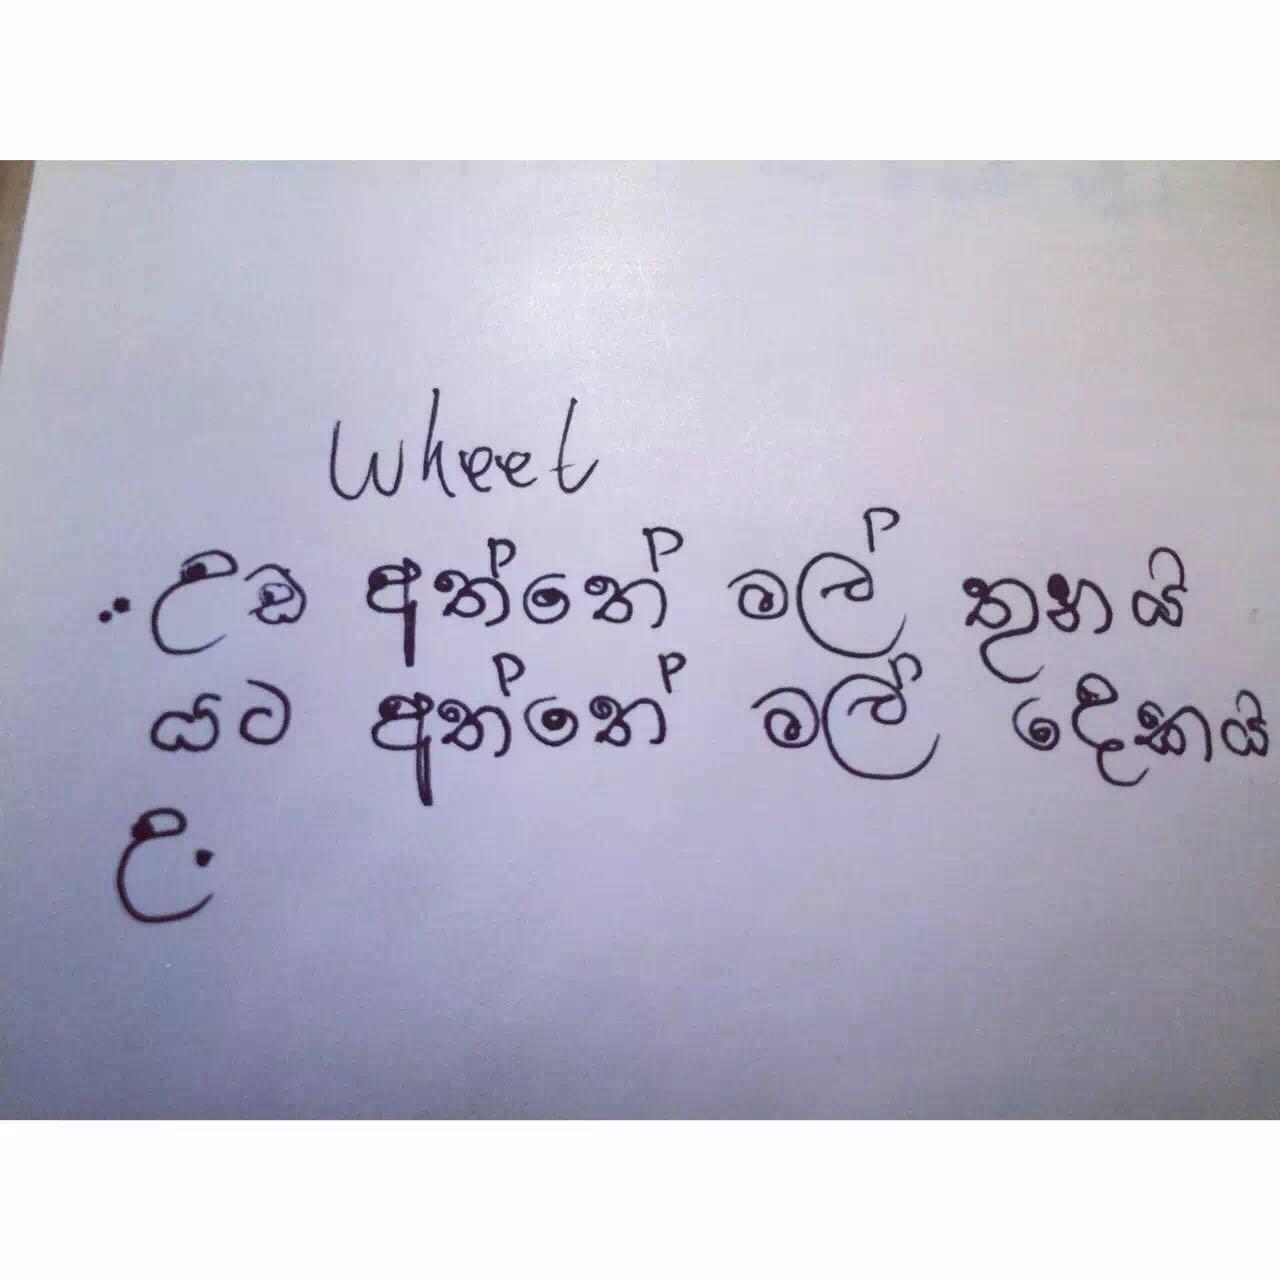 Wheel
උඩ අත්තේ මල් තුනයි
යට අත්තේ මල් දෙකයි
උ